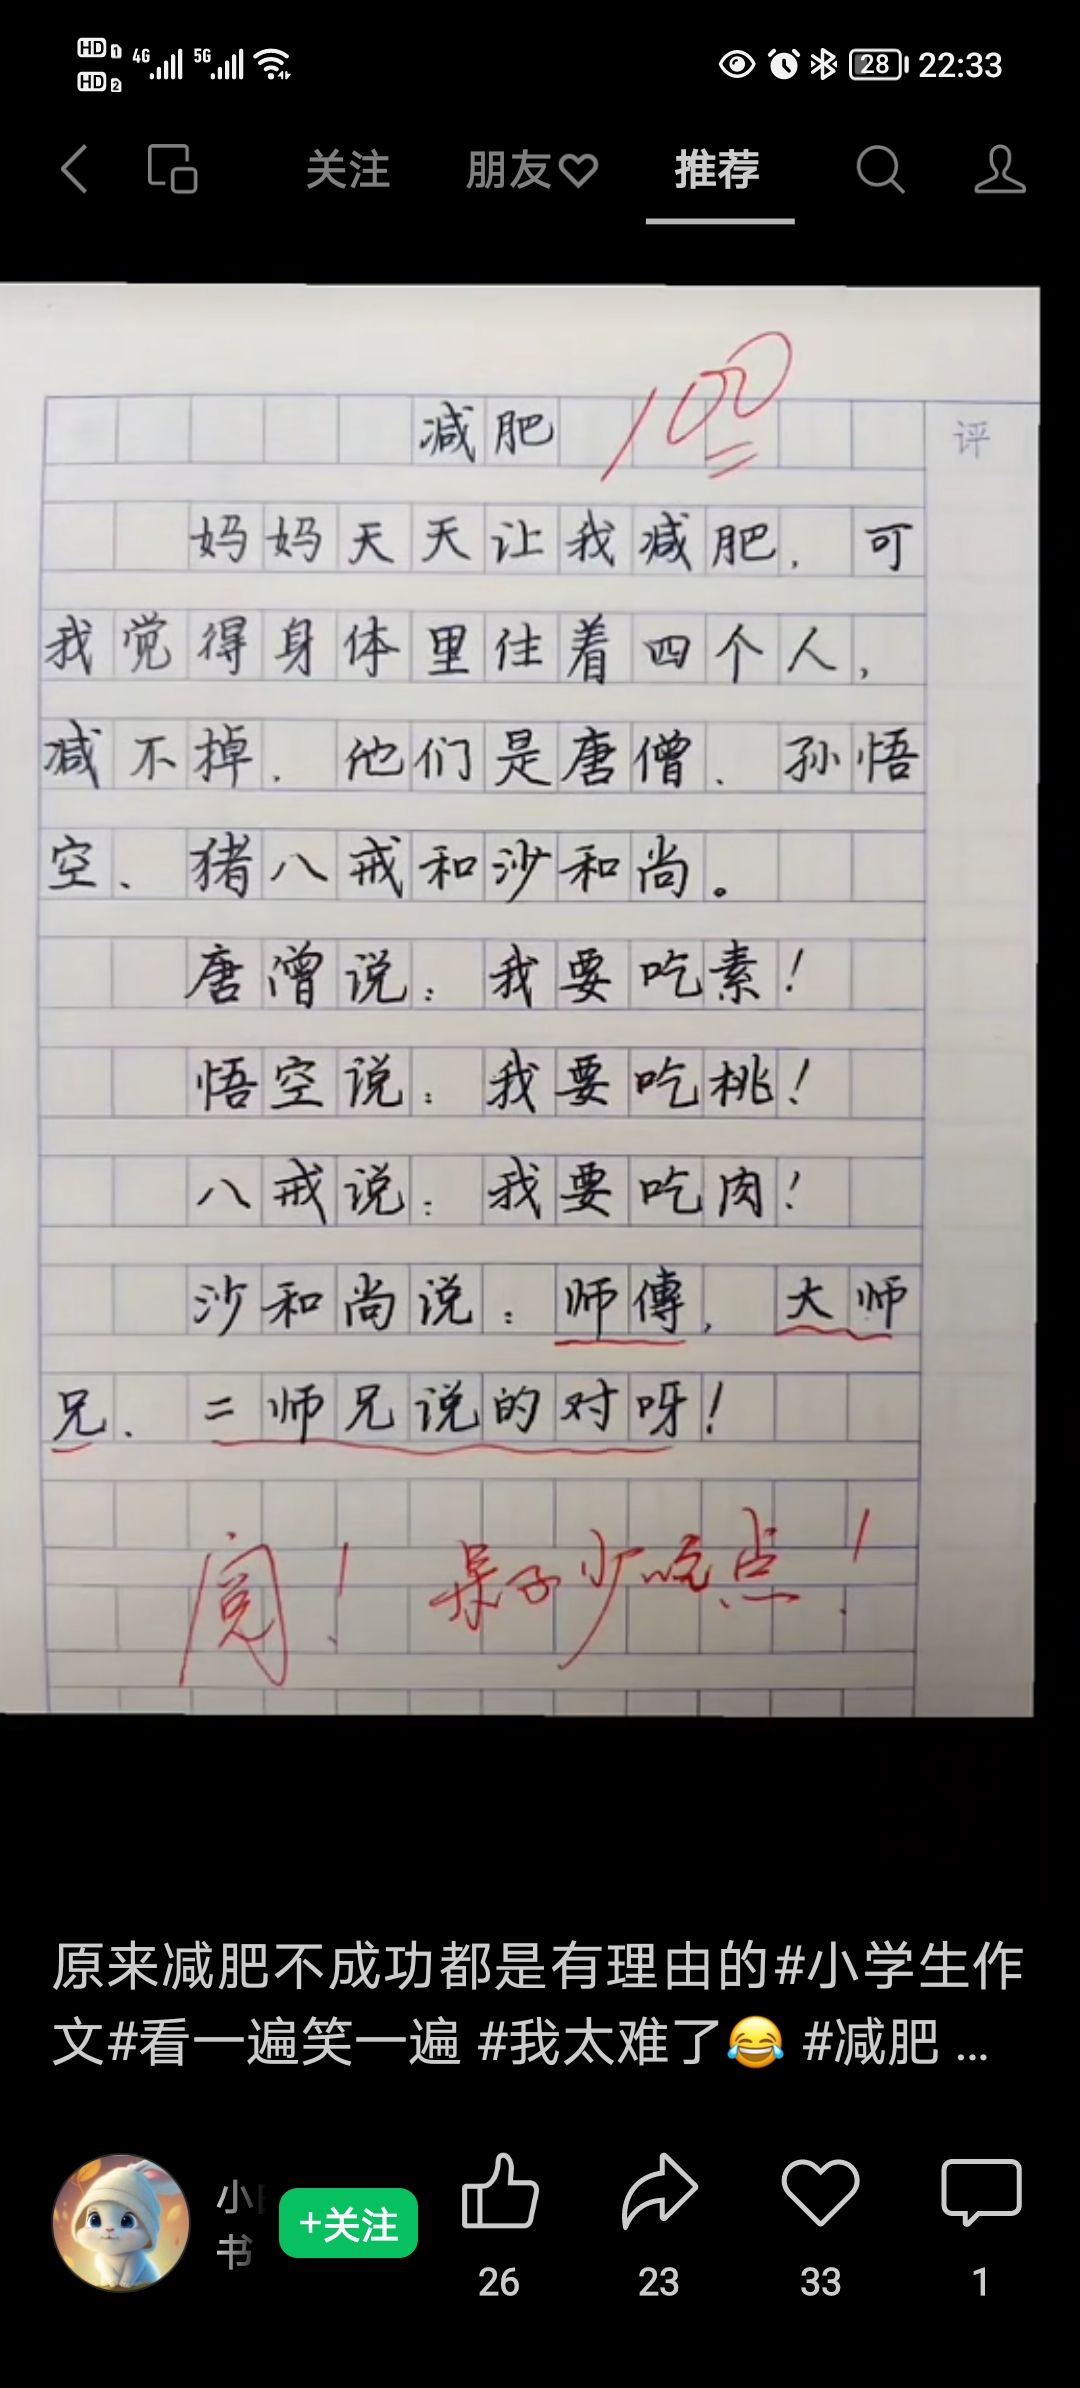 HD 1 4G 5G 28 22:33
HD 2
关注 朋友 推荐
100
减肥
评
妈妈天天让我减肥,可
我觉得身体里住着四个人,
减不掉.他们是唐僧、孙悟
空、猪八戒和沙和尚。
唐僧说:我要吃素!
悟空说:我要吃桃!
八戒说:我要吃肉!
沙和尚说:师傅,大师
兄、二师兄说的对呀!
阅!呆子少吃点!
原来减肥不成功都是有理由的#小学生作
文#看一遍笑一遍 #我太难了😂 #减肥 ...
小
书
+关注
26 23 33 1